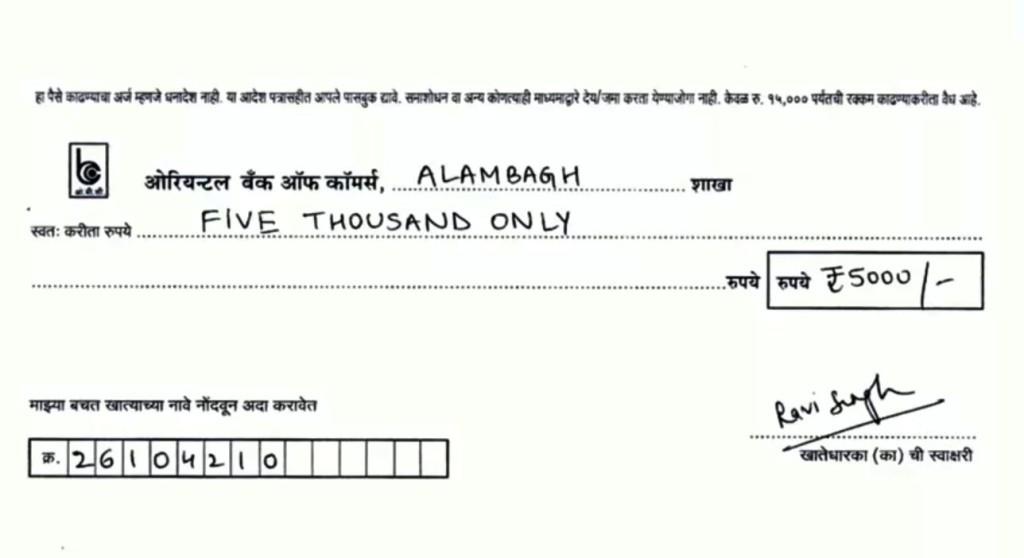 हा पैसे काढण्याचा अर्ज म्हणजे धनादेश नाही. या आदेश पत्रासहीत आपले पासबुक द्यावे. समाशोधन वा अन्य कोणत्याही माध्यमाद्वारे देय/जमा करता येण्याजोगा नाही. केवळ रु. १५,००० पर्यंतची रक्कम काढण्याकरीता वैध आहे.
ओरियन्टल बँक ऑफ कॉमर्स, ALAMBAGH शाखा
स्वतः करीता रुपये FIVE THOUSAND ONLY
रुपये रुपये ₹5000/-
माझ्या बचत खात्याच्या नावे नोंदवून अदा करावेत
Ravi Singh
क्र. 26104210
खातेधारका (का) ची स्वाक्षरी